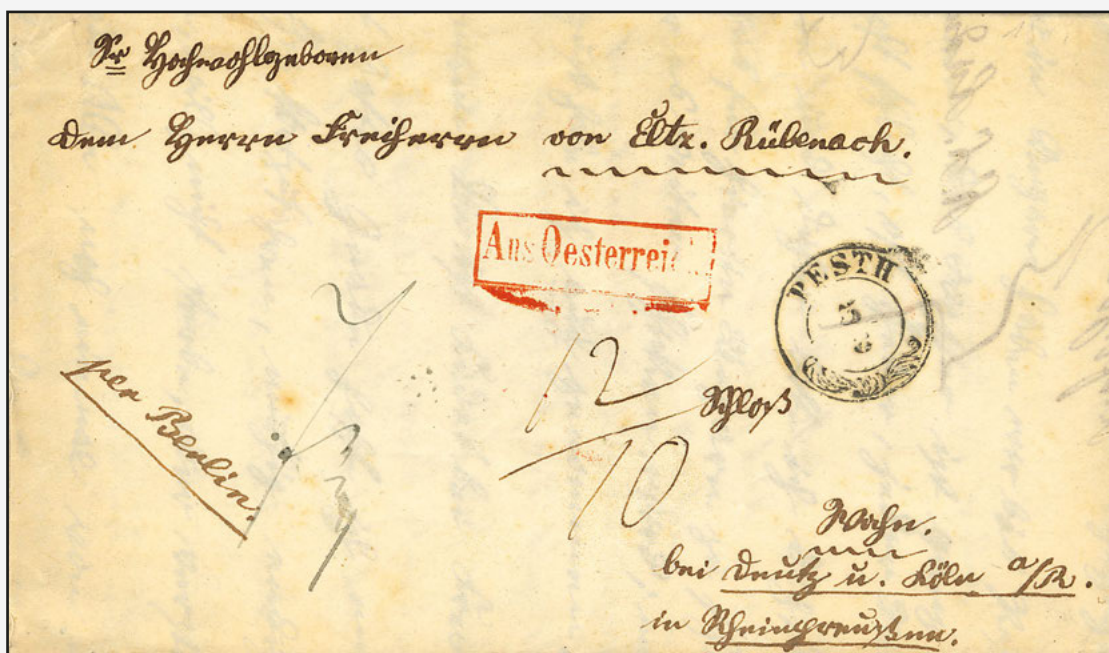 Sr Hochwohlgeboren
dem Herrn Freiherrn von Eltz. Rübenach.
Aus Oesterreich
PESTH
5
8
per Berlin.
12
10
Schloß
Wahn.
bei Deutz u. Köln a/R.
in Rheinpreußen.